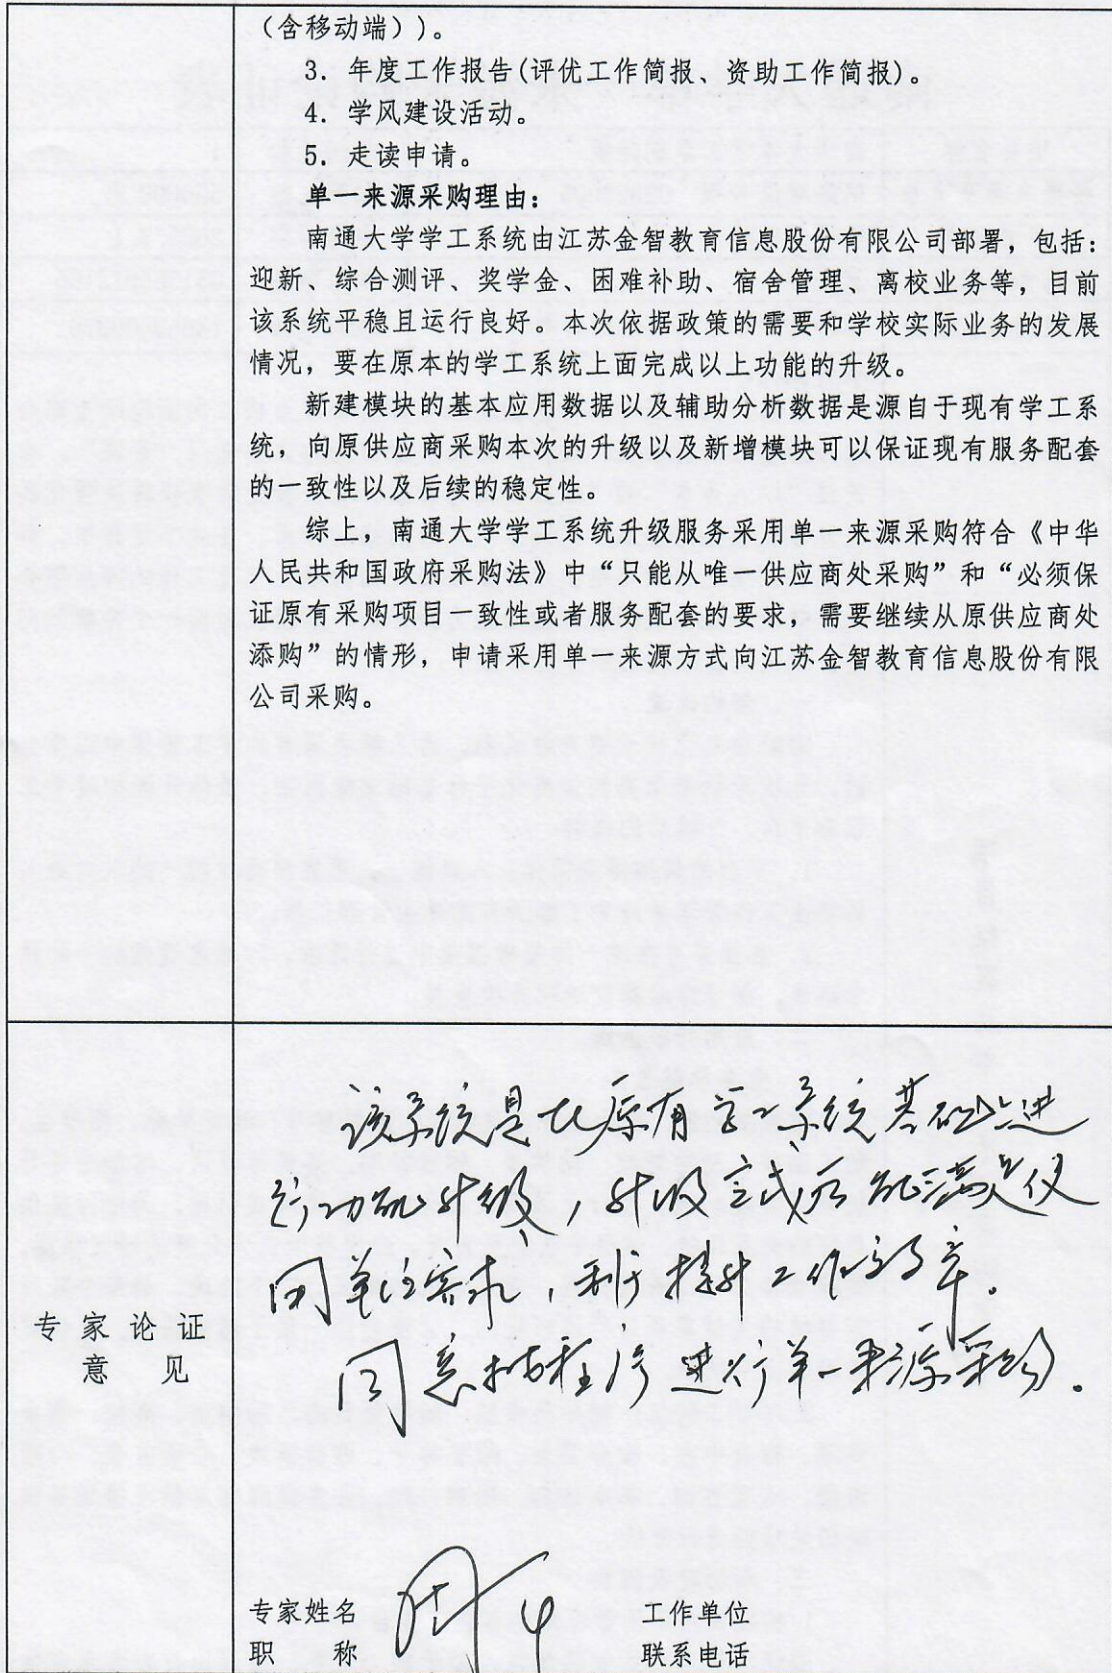 （含移动端））。
3. 年度工作报告(评优工作简报、资助工作简报)。
4. 学风建设活动。
5. 走读申请。
单一来源采购理由：
南通大学学工系统由江苏金智教育信息股份有限公司部署，包括：
迎新、综合测评、奖学金、困难补助、宿舍管理、离校业务等，目前
该系统平稳且运行良好。本次依据政策的需要和学校实际业务的发展
情况，要在原本的学工系统上面完成以上功能的升级。
新建模块的基本应用数据以及辅助分析数据是源自于现有学工系
统，向原供应商采购本次的升级以及新增模块可以保证现有服务配套
的一致性以及后续的稳定性。
综上，南通大学学工系统升级服务采用单一来源采购符合《中华
人民共和国政府采购法》中“只能从唯一供应商处采购”和“必须保
证原有采购项目一致性或者服务配套的要求，需要继续从原供应商处
添购”的情形，申请采用单一来源方式向江苏金智教育信息股份有限
公司采购。
专家论证
意见
该系统是在原有学工系统基础上进
行功能升级，升级完成后能满足使
用单位需求，利于提升工作效率。
同意按程序进行单一来源采购.
专家姓名 工作单位
职称 联系电话